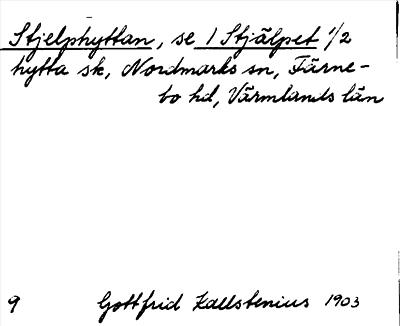 Stjelphyttan, se 1 Stjälpet 1/2
hytta sk, Nordmarks sn, Färne-
bo hd, Värmlands län
9 Gottfrid Kallstenius 1903